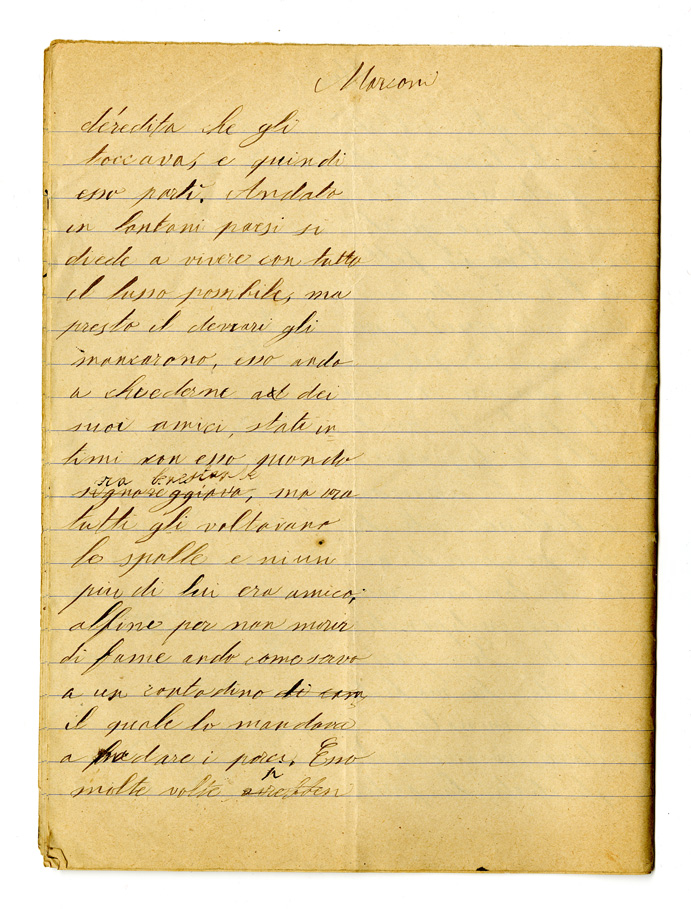 Marconi
d'eredita che gli
toccava, e quindi
esso partì. Andato
in lontani paesi si
diede a vivere con tutto
il lusso possibile, ma
presto il denari gli
mancarono, esso ando
a chiederne ad dei
suoi amici, stati in
timi con esso quando
era benestante
signoreggiava, ma ora
tutti gli voltavano
le spalle e niun
più di lui era amico;
alfine per non morir
di fame ando come servo
a un contadino di cam
il quale lo mandava
a badare i porci. Esso
molte volte